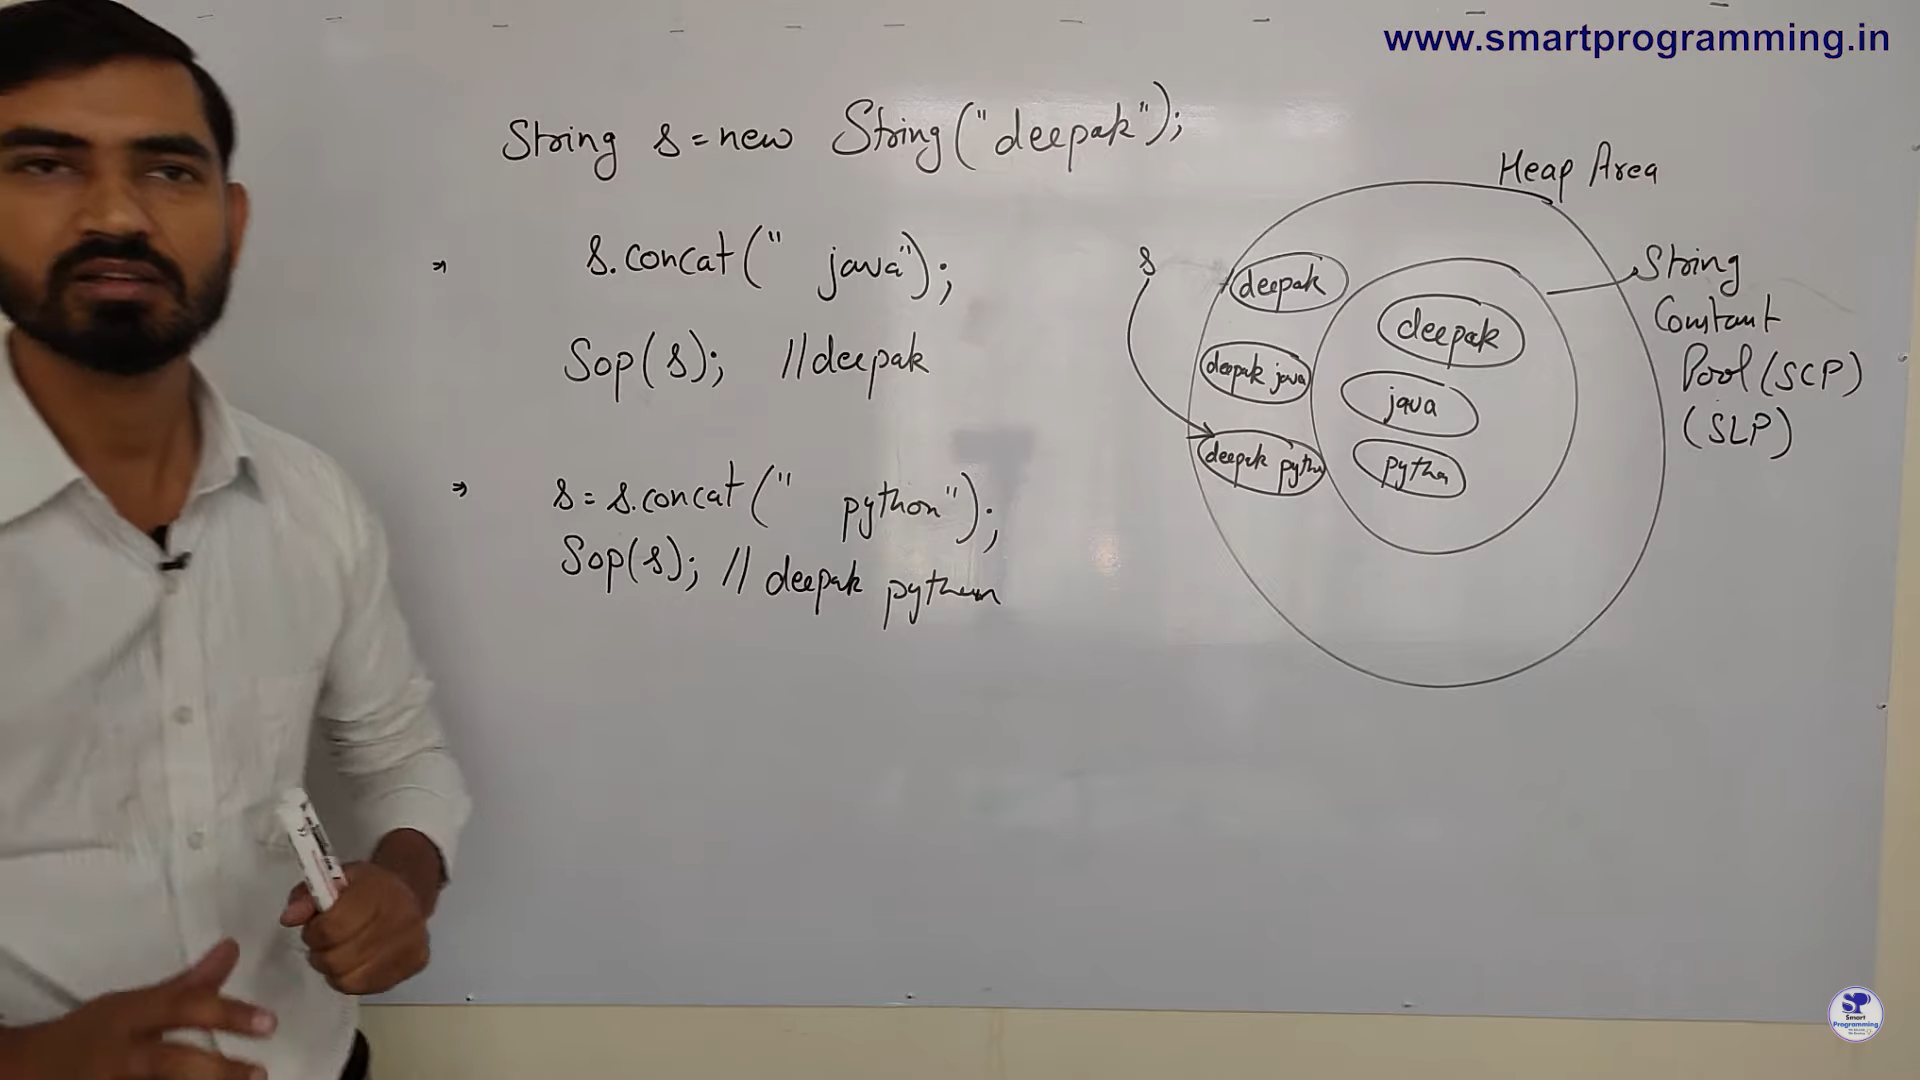 www.smartprogramming.in
String s = new String("deepak");
⇒ s.concat(" java");
Sop(s); //deepak
⇒ s = s.concat(" python");
Sop(s); // deepak python
Heap Area
s
deepak
deepak java
deepak pytho
deepak
java
pytho
String
Constant
Pool (SCP)
(SLP)
SP
Smart
Programming